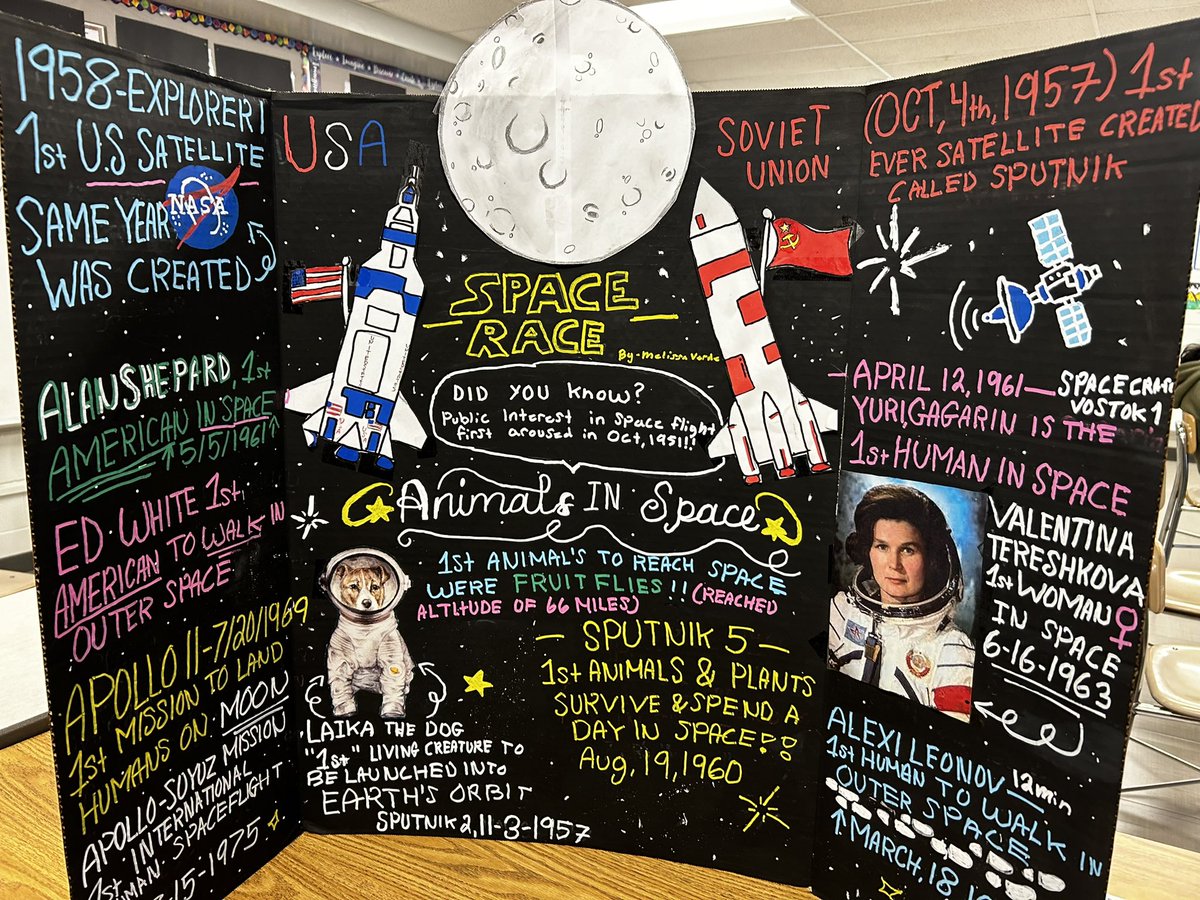 1958-EXPLORER 1
1st U.S SATELLITE
SAME YEAR
NASA
WAS CREATED
ALAN SHEPARD, 1st
AMERICAN IN SPACE
5/5/1961
ED WHITE 1st
AMERICAN TO WALK IN
OUTER SPACE
APOLLO 11-7/20/1969
1st MISSION TO LAND
HUMANS ON MOON
APOLLO-SOYUZ MISSION
1st INTERNATIONAL
HUMAN SPACEFLIGHT
15-1975
USA
SOVIET
UNION
SPACE
RACE
By-Melissa
DID YOU KNOW?
Public Interest in Space flight
first aroused in Oct, 1951!!
Animals IN Space
1st ANIMAL'S TO REACH SPACE
WERE FRUIT FLIES!! (REACHED
ALTITUDE OF 66 MILES)
LAIKA THE DOG
"1st" LIVING CREATURE TO
BE LAUNCHED INTO
EARTH'S ORBIT
SPUTNIK 2, 11-3-1957
- SPUTNIK 5 -
1st ANIMALS & PLANTS
SURVIVE & SPEND A
DAY IN SPACE!!
Aug, 19, 1960
(OCT, 4th, 1957) 1st
EVER SATELLITE CREATED
CALLED SPUTNIK
-APRIL 12, 1961- SPACECRAFT
VOSTOK 1
YURI, GAGARIN IS THE
1st HUMAN IN SPACE
VALENTINA
TERESHKOVA
1st WOMAN
IN SPACE
6-16-1963
ALEXI LEONOV- 12min
1st HUMAN TO WALK IN
OUTER SPACE
MARCH, 18